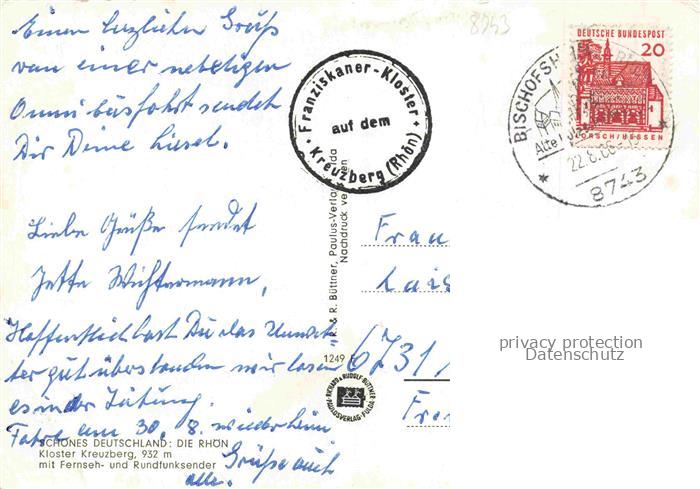 Einen herzlichen Gruß
von einer nebeligen
Omnibusfahrt sendet
Dir Deine Liesel.
Liebe Grüße sendet
Jette
Hoffentlich hast Du das Unwet
ter gut überstanden wir lasen
es in der Zeitung.
am 30. 8. wieder heim
Grüße auch
alle.
SCHÖNES DEUTSCHLAND: DIE RHÖN
Kloster Kreuzberg, 932 m
mit Fernseh- und Rundfunksender
Franziskaner-Kloster
auf dem
Kreuzberg (Rhön)
R. & R. Büttner, Paulus-Verlag
Nachdruck
1249
RICHARD & RUDOLF BÜTTNER
PAULUSVERLAG · FULDA
8743
DEUTSCHE BUNDESPOST
20
LORSCH/HESSEN
BISCHOFSHEIM
22.8.66
8743
Frau
6731
privacy protection
Datenschutz